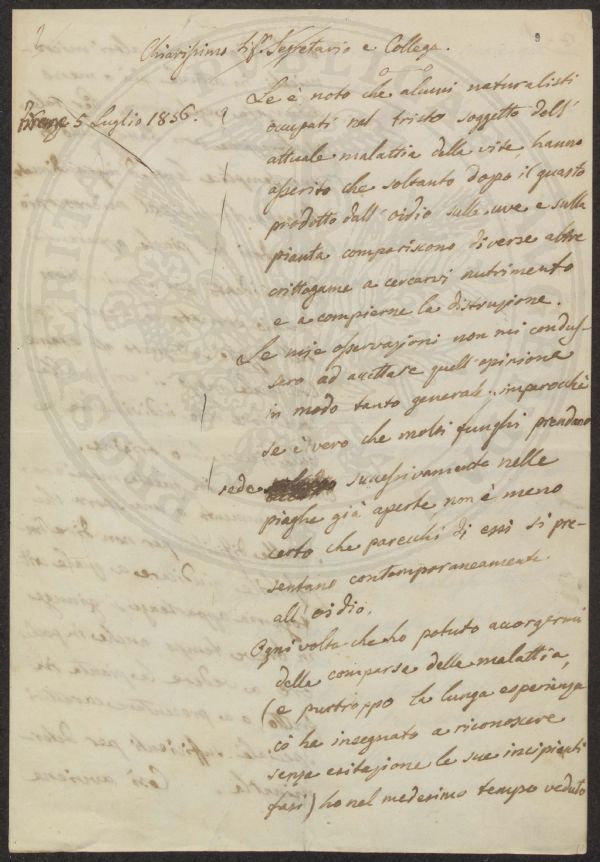 9
Chiarissimo Sigr. Segretario e Collega.
Firenze 5 Luglio 1856.
Le è noto che alcuni naturalisti
occupati nel tristo soggetto dell'
attuale malattia della vite, hanno
asserito che soltanto dopo il guasto
prodotto dall'oidio sulle uve e sulla
pianta compariscono diverse altre
crittogame a cercarvi nutrimento
e a compierne la distruzione.
Le mie osservazioni non mi condus-
sero ad accettare quell'opinione
in modo tanto generale. imperocchè
se è vero che molti funghi prendono
sede successivamente nelle
piaghe già aperte non è meno
certo che parecchi di essi si pre-
sentano contemporaneamente
all'oidio.
Ogni volta che ho potuto accorgermi
della comparsa della malattia,
(e purtroppo la lunga esperienza
ci ha insegnato a riconoscere
senza esitazione le sue incipienti
fasi) ho nel medesimo tempo veduto